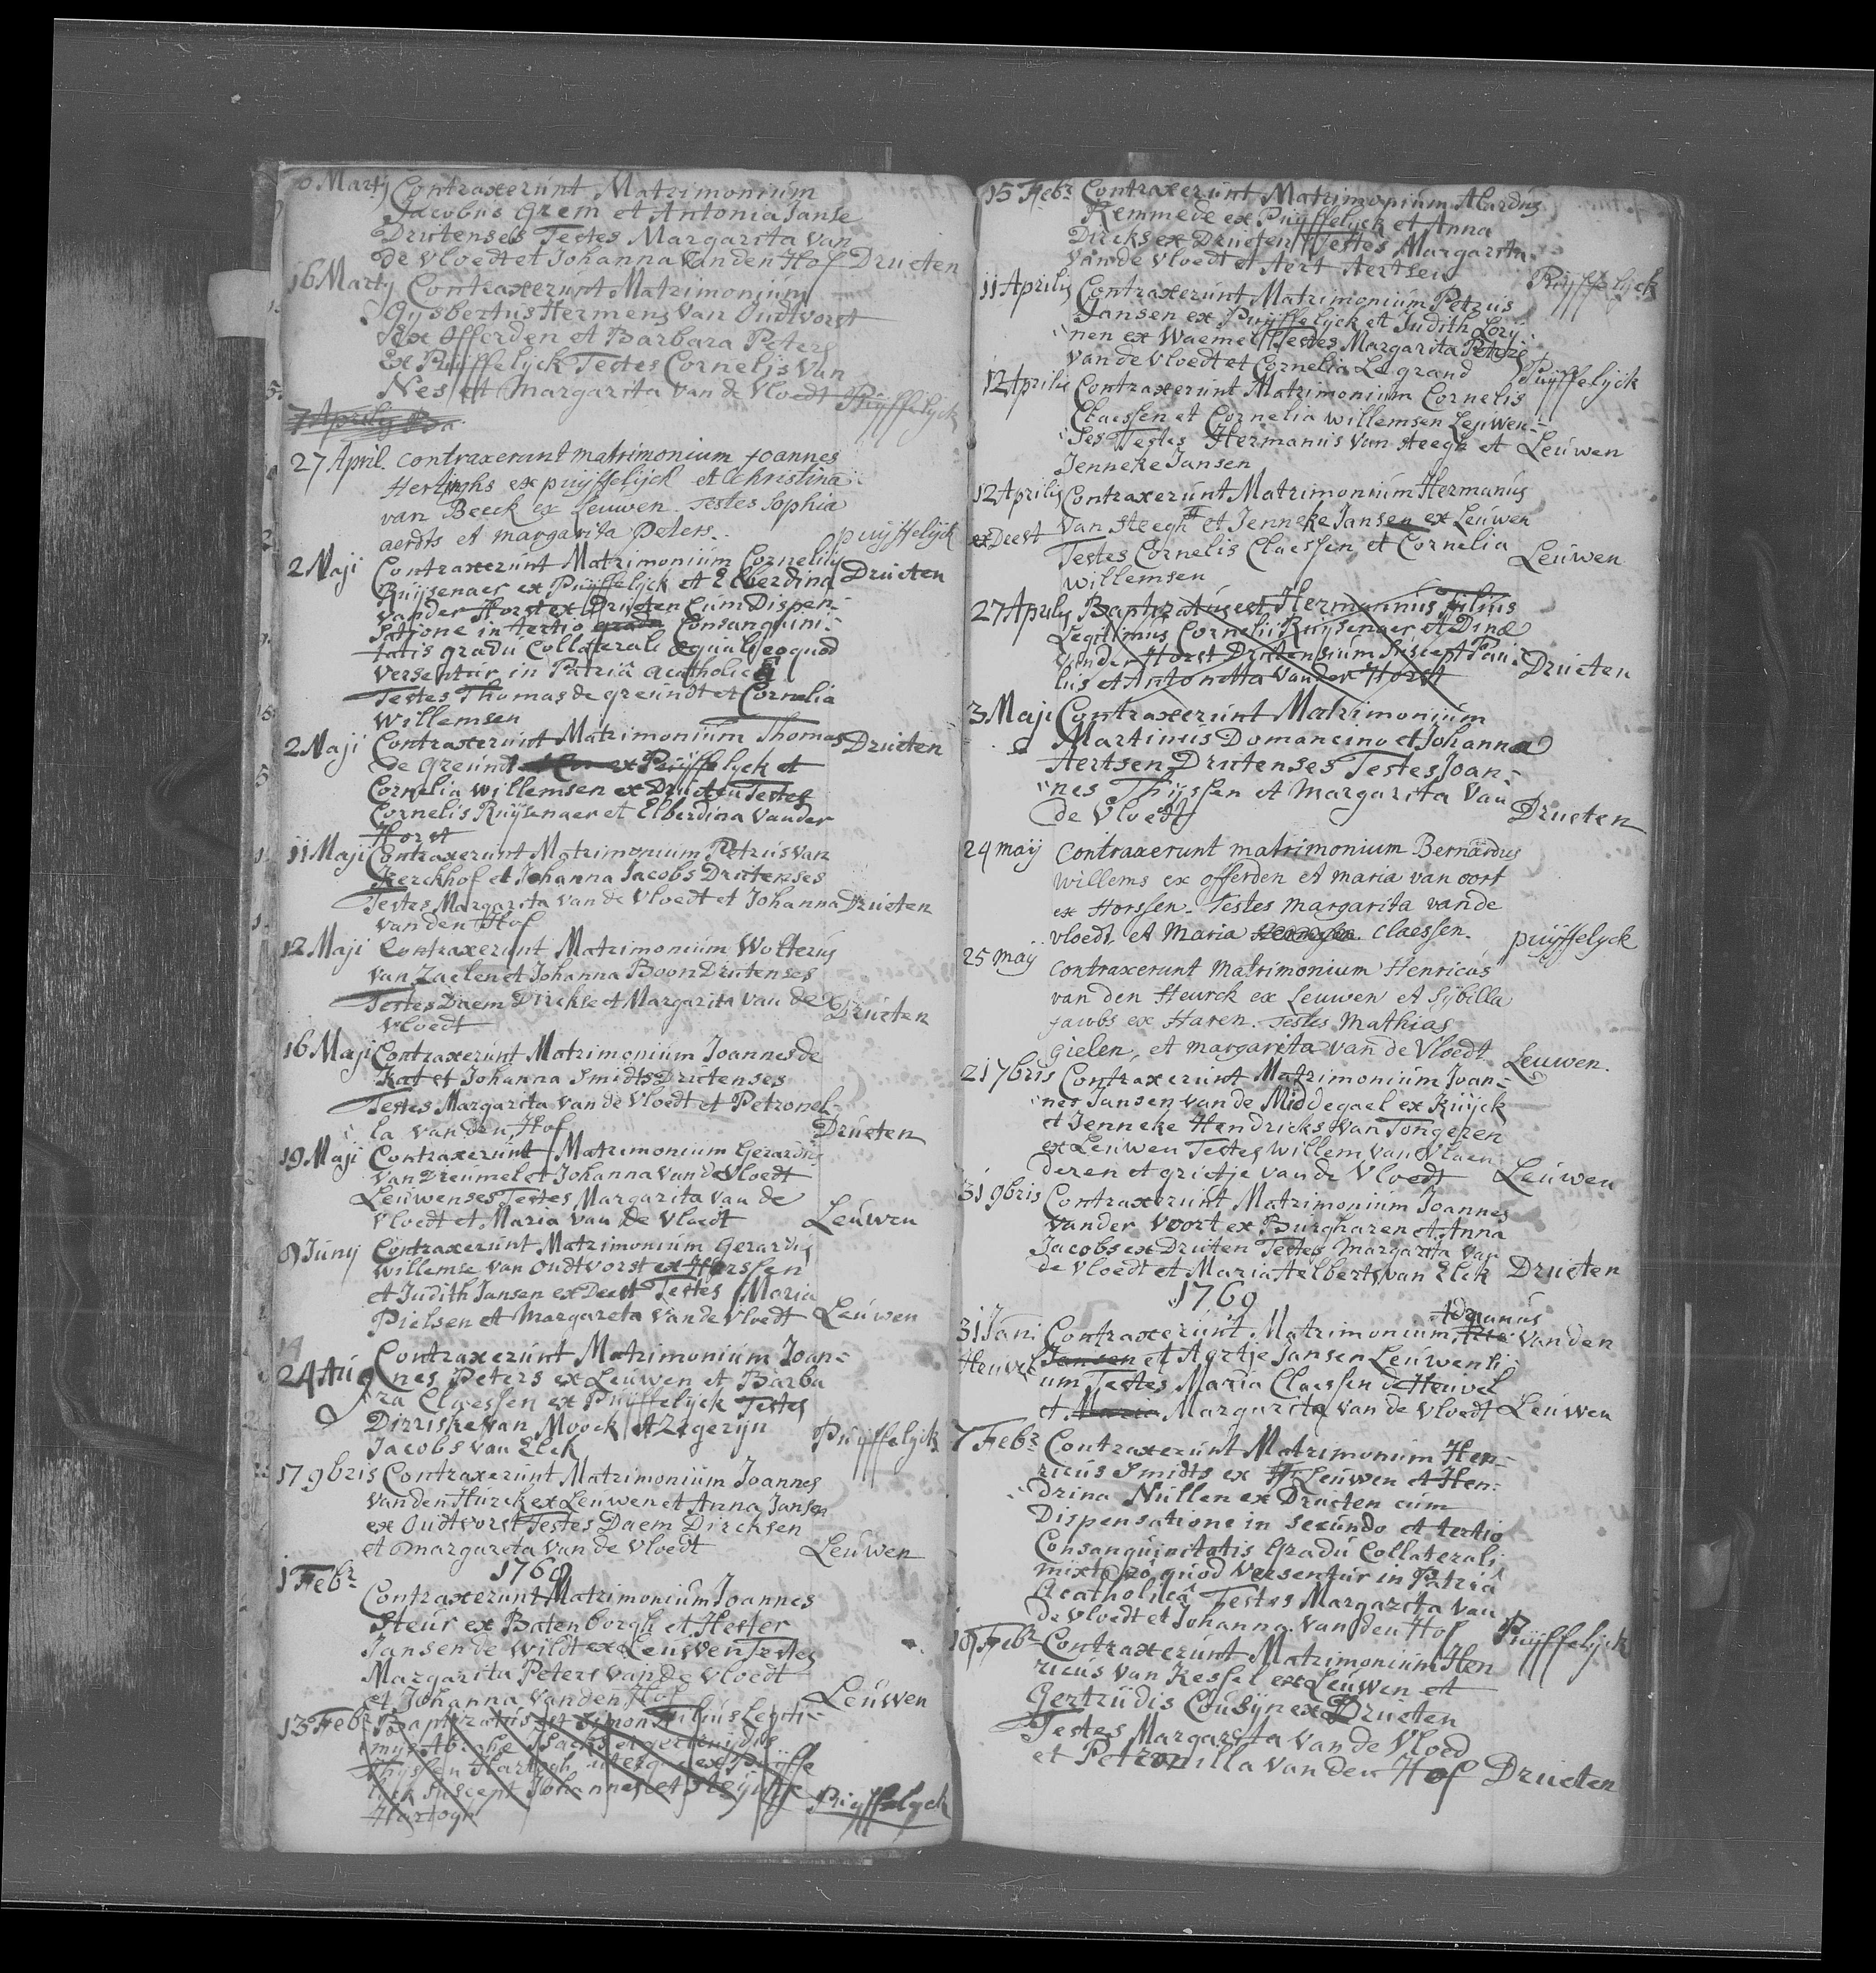 Marty Contraxerunt Matrimonium
Jacobus Grem et Antonia Janse
Drutenses Testes Margarita van
de Vloedt et Johanna van den Hof Drueten
16 Marty Contraxerunt Matrimonium
Gysbertus Hermens van Oudtvorst
ex Offerden et Barbara Peters
Ex Puyffelyck Testes Cornelis van
Nes et Margarita van de Vloedt Puyffelyck
7 Aprilis
27 April. contraxerunt matrimonium Joannes
ex puyffelyck et Christina
van Beeck ex Leuwen. Testes Sophia
aerdts et margarita peters. puyffelyck
2 Maji Contraxerunt Matrimonium Cornelius
Ruysenaer ex Puyffelyck et Elberdina Drueten
vander Horst ex Drueten Cum Dispen-
satione in tertio gradu Consanguini-
tatis gradu Collaterali aequali eo quod
versentur in Patriâ acatholica
Testes Thomas de greundt et Cornelia
Willemsen
2 Maji Contraxerunt Matrimonium Thomas Drueten
de Greundt ex Puyffelyck et
Cornelia Willemsen ex Drueten Testes
Cornelis Ruysenaer et Elberdina vander
Horst
11 Maji Contraxerunt Matrimonium Petrus van
Kerckhof et Johanna Jacobs Drutenses
Testes Margarita van de Vloedt et Johanna Drueten
van den Hof
12 Maji Contraxerunt Matrimonium Wolterus
van Zaelen et Johanna Boon Drutenses
Testes Daem Dirckse et Margarita van de Drueten
Vloedt
16 Maji Contraxerunt Matrimonium Joannes de
Kat et Johanna Smidts Drutenses
Testes Margarita van de Vloedt et Petronel-
la van den Hof Drueten
19 Maji Contraxerunt Matrimonium Gerardus
van Dreumel et Johanna van de Vloedt
Leuwenses Testes Margarita van de
Vloedt et Maria van de Vloedt Leuwen
9 Juny Contraxerunt Matrimonium Gerardus
Willemse van Oudtvorst ex Horssen
et Judith Jansen ex Deest Testes Maria
Pielsen et Margareta van de Vloedt Leuwen
24 Aug Contraxerunt Matrimonium Joan-
nes Peters ex Leuwen et Barba
ra Claessen ex Puyffelyck Testes
Dirriske van Moock et Zegeryn
Jacobs van Elck Puyffelyck
17 9bris Contraxerunt Matrimonium Joannes
van den Hurck ex Leuwen et Anna Jansen
ex Oudtvorst Testes Daem Dircksen
et Margareta van de Vloedt Leuwen
1768
1 Febr Contraxerunt Matrimonium Joannes
Steur ex Batenborgh et Hester
Jansen de Wildt ex Leuwen Testes
Margarita Peters van de Vloedt
et Johanna van den Hof Leuwen
13 Febr Baptizatus est Simon Filius Legiti-
mus Abrahae Isacks et gertruydis
Thyssen Hartogh uterque ex Puyffe
lyck Suscept Johannes et
Hartogh Puyffelyck
15 Febr Contraxerunt Matrimonium Alardus
Remmede ex Puyffelyck et Anna
Dircks ex Drueten Testes Margarita
van de Vloedt et Aert Aertsen Puyffelyck
11 Aprilis Contraxerunt Matrimonium Petrus
Jansen ex Puyffelyck et Judith
nen ex Waemel Testes Margarita Peters
van de Vloedt et Cornelia Le grand Puyffelyck
12 Aprilis Contraxerunt Matrimonium Cornelis
Claessen et Cornelia Willemsen Leuwen-
ses Testes Hermanus van Steegh et Leuwen
Jenneke Jansen
12 Aprilis Contraxerunt Matrimonium Hermanus
ex Deest van Steegh # et Jenneke Jansen ex Leuwen
Testes Cornelis Claessen et Cornelia Leuwen
Willemsen
27 Aprilis Baptizatus est Hermannus Filius
Legitimus Cornelii Ruysenaer et Dinae
vander Horst Drutensium Suscept Pau-
lus et Antonetta vander Horst Drueten
3 Maji Contraxerunt Matrimonium
Martinus Domancino et Johanna
Aertsen Drutenses Testes Joan-
nes Thyssen et Margarita van
de Vloedt Drueten
24 maij Contraxerunt matrimonium Bernardus
Willems ex offerden et maria van oort
ex Horssen. Testes margarita van de
vloedt et Maria claessen. puyffelyck
25 maij contraxerunt matrimonium Henricus
van den Heurck ex Leuwen et Sybilla
Jacobs ex Haren. Testes Mathias
Gielen, et margarita van de Vloedt Leuwen.
21 7bris Contraxerunt Matrimonium Joan-
nes Jansen van de Middegael ex Ruyck
et Jenneke Hendricks van Tongeren
ex Leuwen Testes Willem van Vlaen
deren et grietje van de Vloedt Leuwen
31 9bris Contraxerunt Matrimonium Joannes
vander Voort ex Burgharen et Anna
Jacobs ex Druten Testes Margarita van
de Vloedt et Maria Aelberts van Elck Drueten
1769
Adrianus
31 Jani Contraxerunt Matrimonium van den
Heuvel Jansen et Aertje Jansen Leuwensi-
um Testes Maria Claessen de Heuvel
et Maria Margarita van de Vloedt Leuwen
7 Febr Contraxerunt Matrimonium Hen-
ricus Smidts ex Leuwen et Hen-
drina Nullen ex Drueten cum
Dispensatione in secundo et tertio
Consanguinitatis Gradu Collaterali
mixto eo quod versentur in Patriâ
Acatholicâ Testes Margarita van
de Vloedt et Johanna van den Hof Puyffelyck
Febr Contraxerunt Matrimonium Hen
ricus van Kessel ex Leuwen et
Gertrudis Cousyn ex Drueten
Testes Margarita van de Vloed
et Petronilla van den Hof Drueten